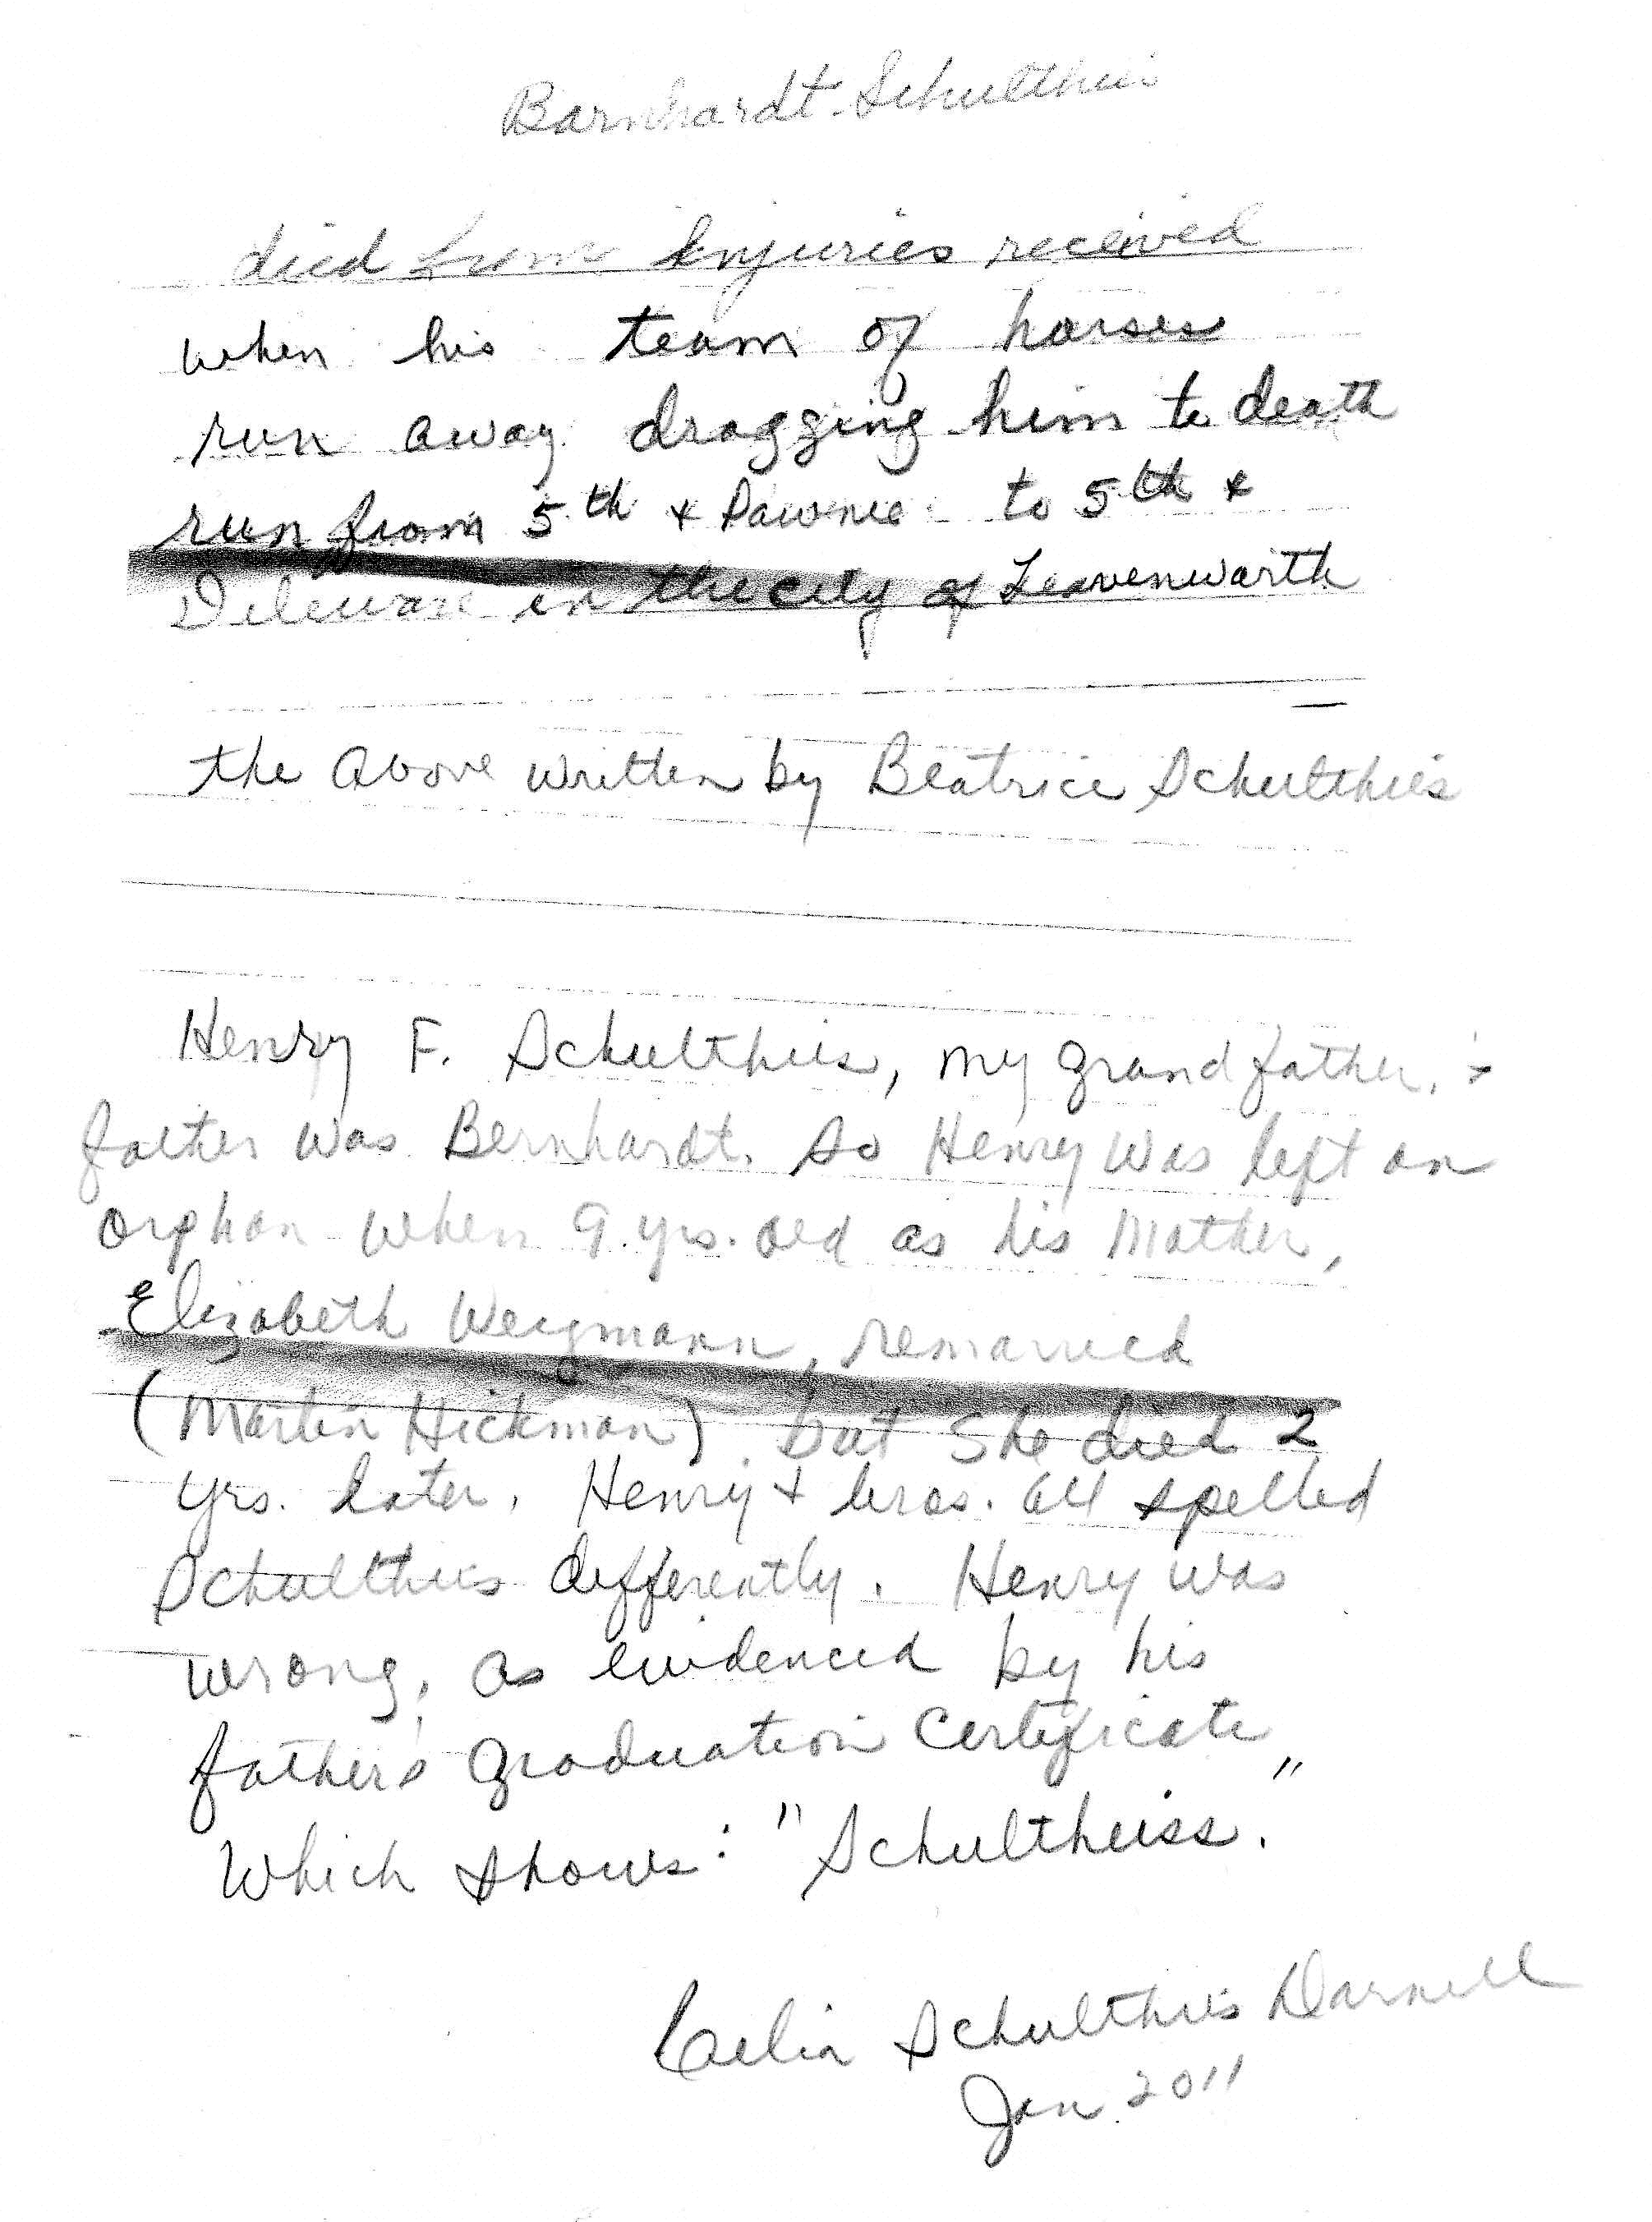 Barnhardt Schulthies
died from Injuries received
when his team of horses
run away dragging him to death
run from 5th + Pawnee to 5th +
Deleware in the city of Leavenworth
the above written by Beatrice Schulthies
Henry F. Schulthies, my grandfather,
father was Bernhardt. So Henry was left an
orphan when 9 yrs. old as his Mother,
Elizabeth Weigmann, remarried
(Martin Hickman) but she died 2
yrs. later. Henry + bros. all spelled
Schulthies differently. Henry was
wrong, as evidenced by his
father's graduation certificate
which shows: "Schultheiss."
Celia Schulthies Darnell
Jan 2011